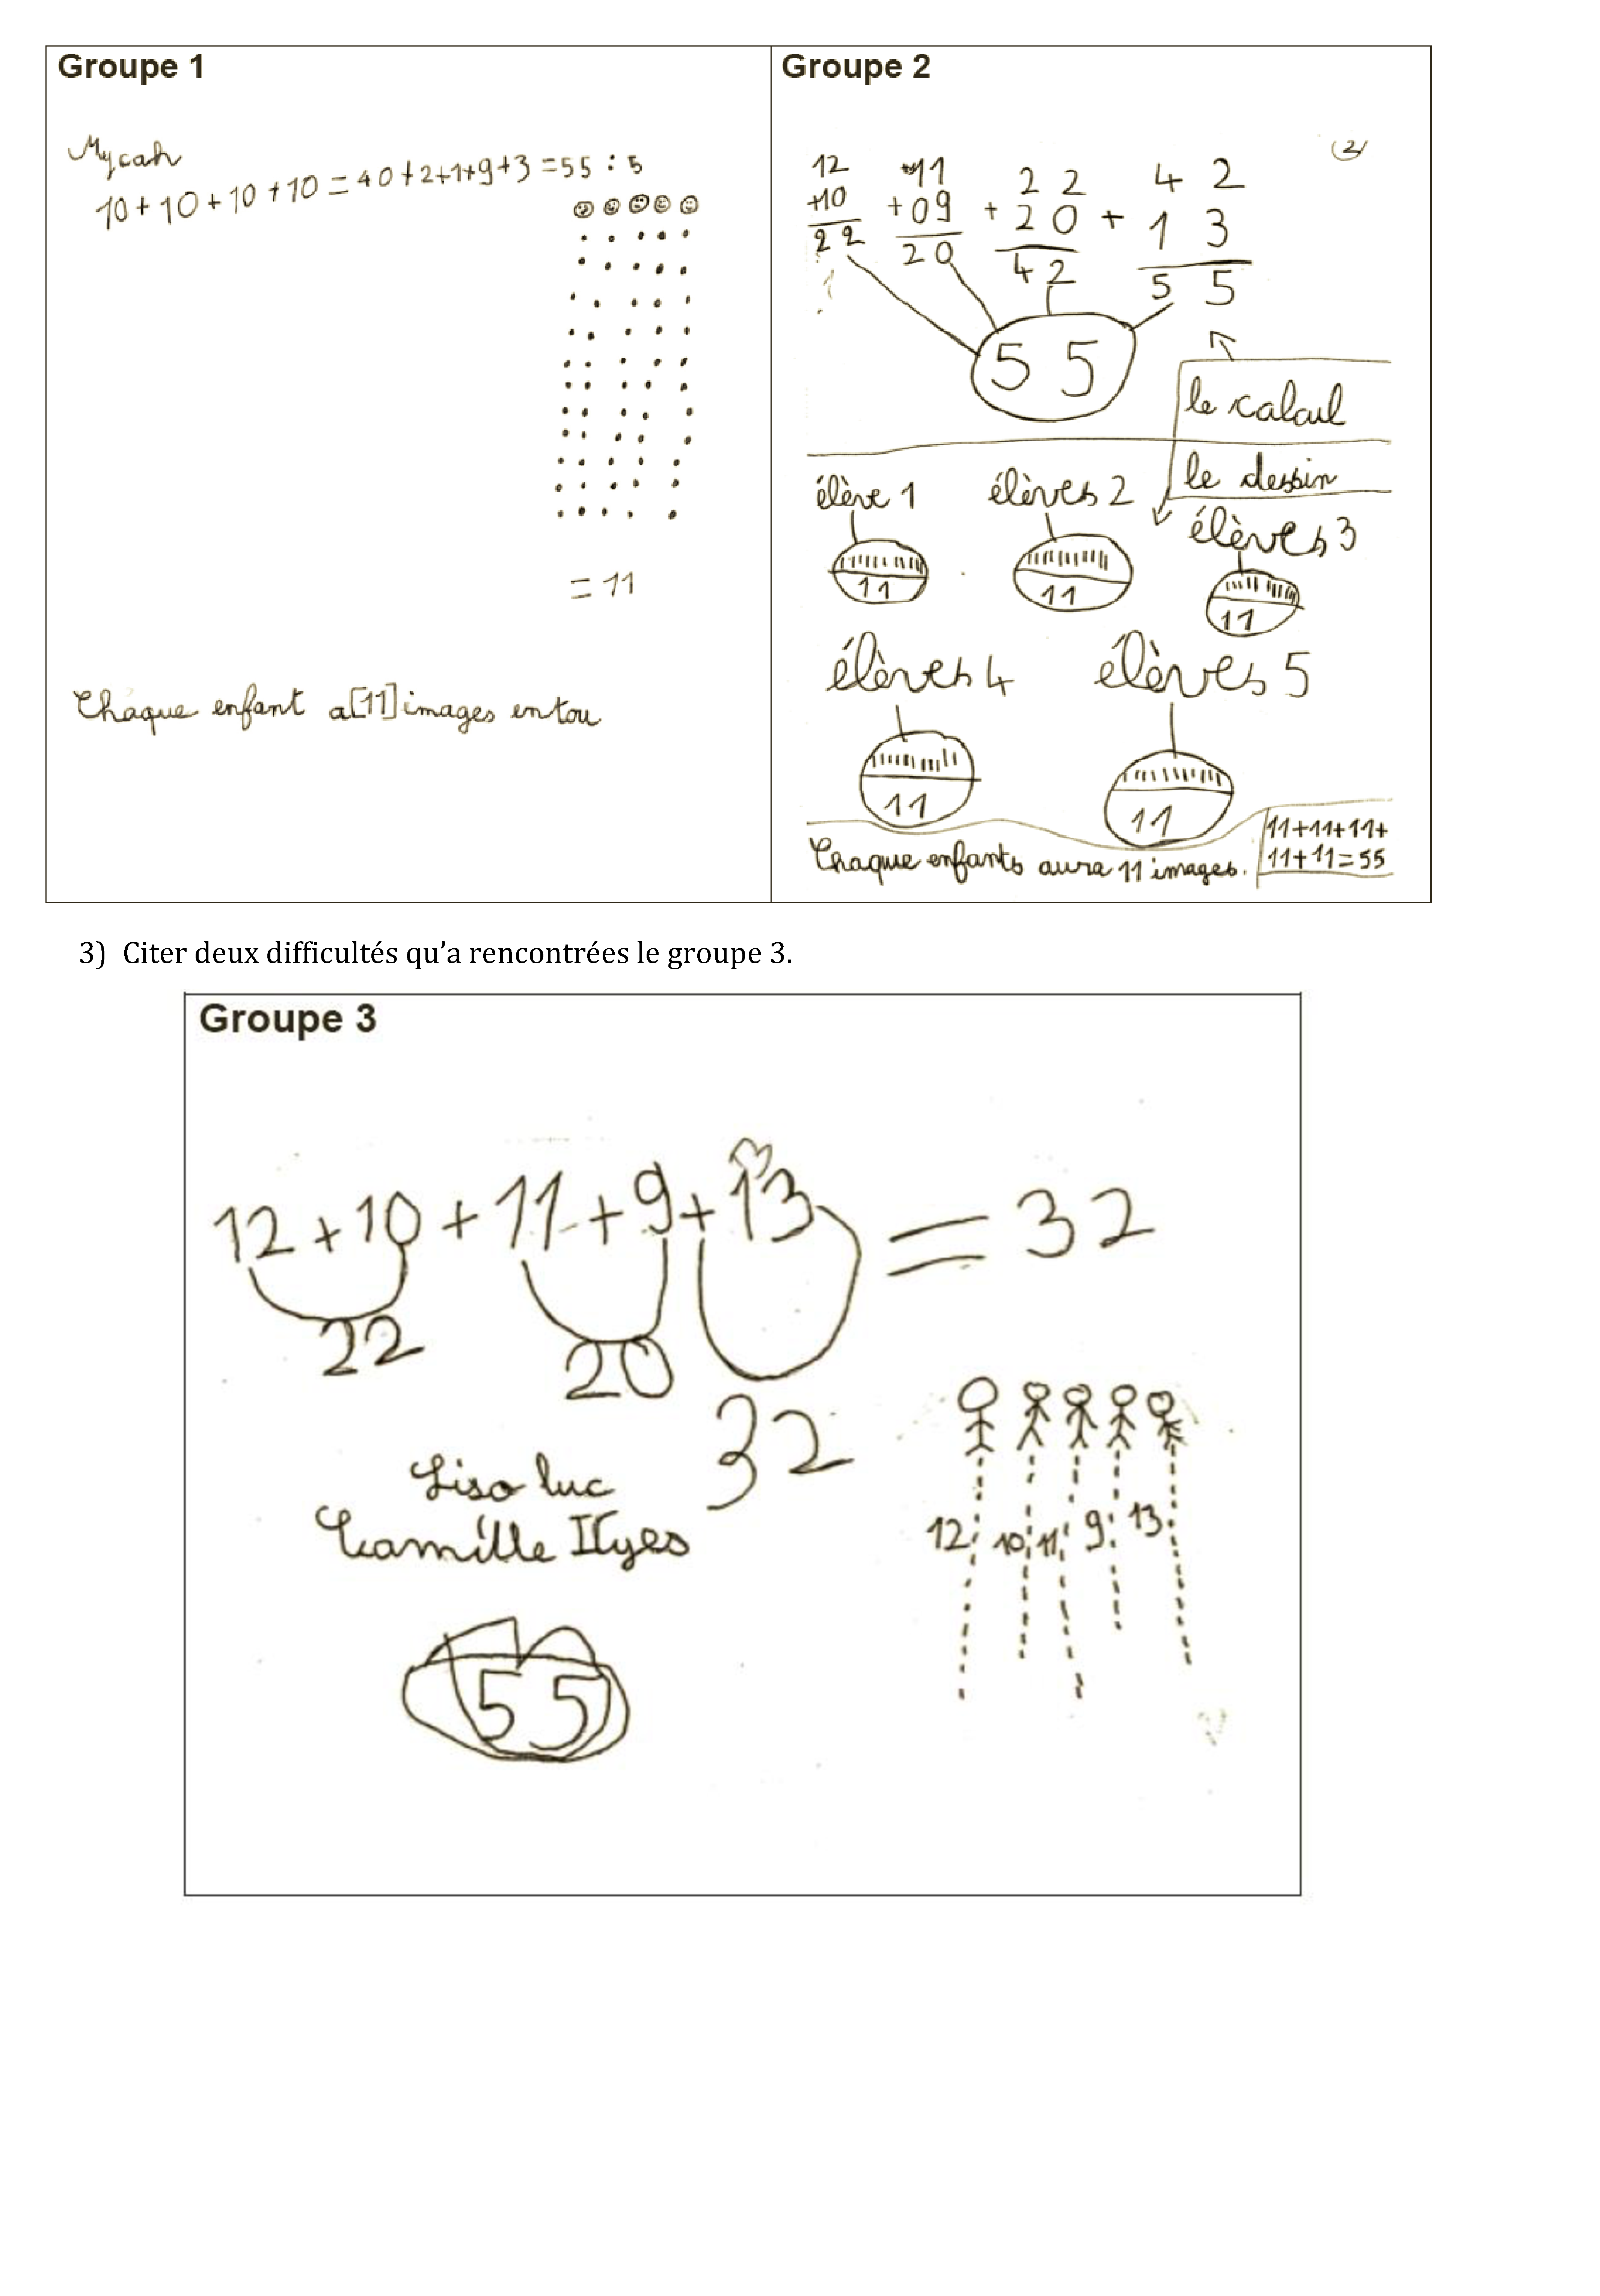 Groupe 1
Mycah
10+10+10+10=40+2+1+9+3=55:5
=11
Chaque enfant a[11]images entou
Groupe 2
2
12 11 22 42
+10 +09 +20 +13
22 20 42 55
55
le calcul
le dessin
élève 1 élèves 2
élèves 3
11 11
11
élèves 4 élèves 5
11 11
Chaque enfants aura 11 images.
11+11+11+
11+11=55
3) Citer deux difficultés qu’a rencontrées le groupe 3.
Groupe 3
12+10+11+9+13=32
22 20
32
luc
Camille Ilyes
12 10 11 9 13
55